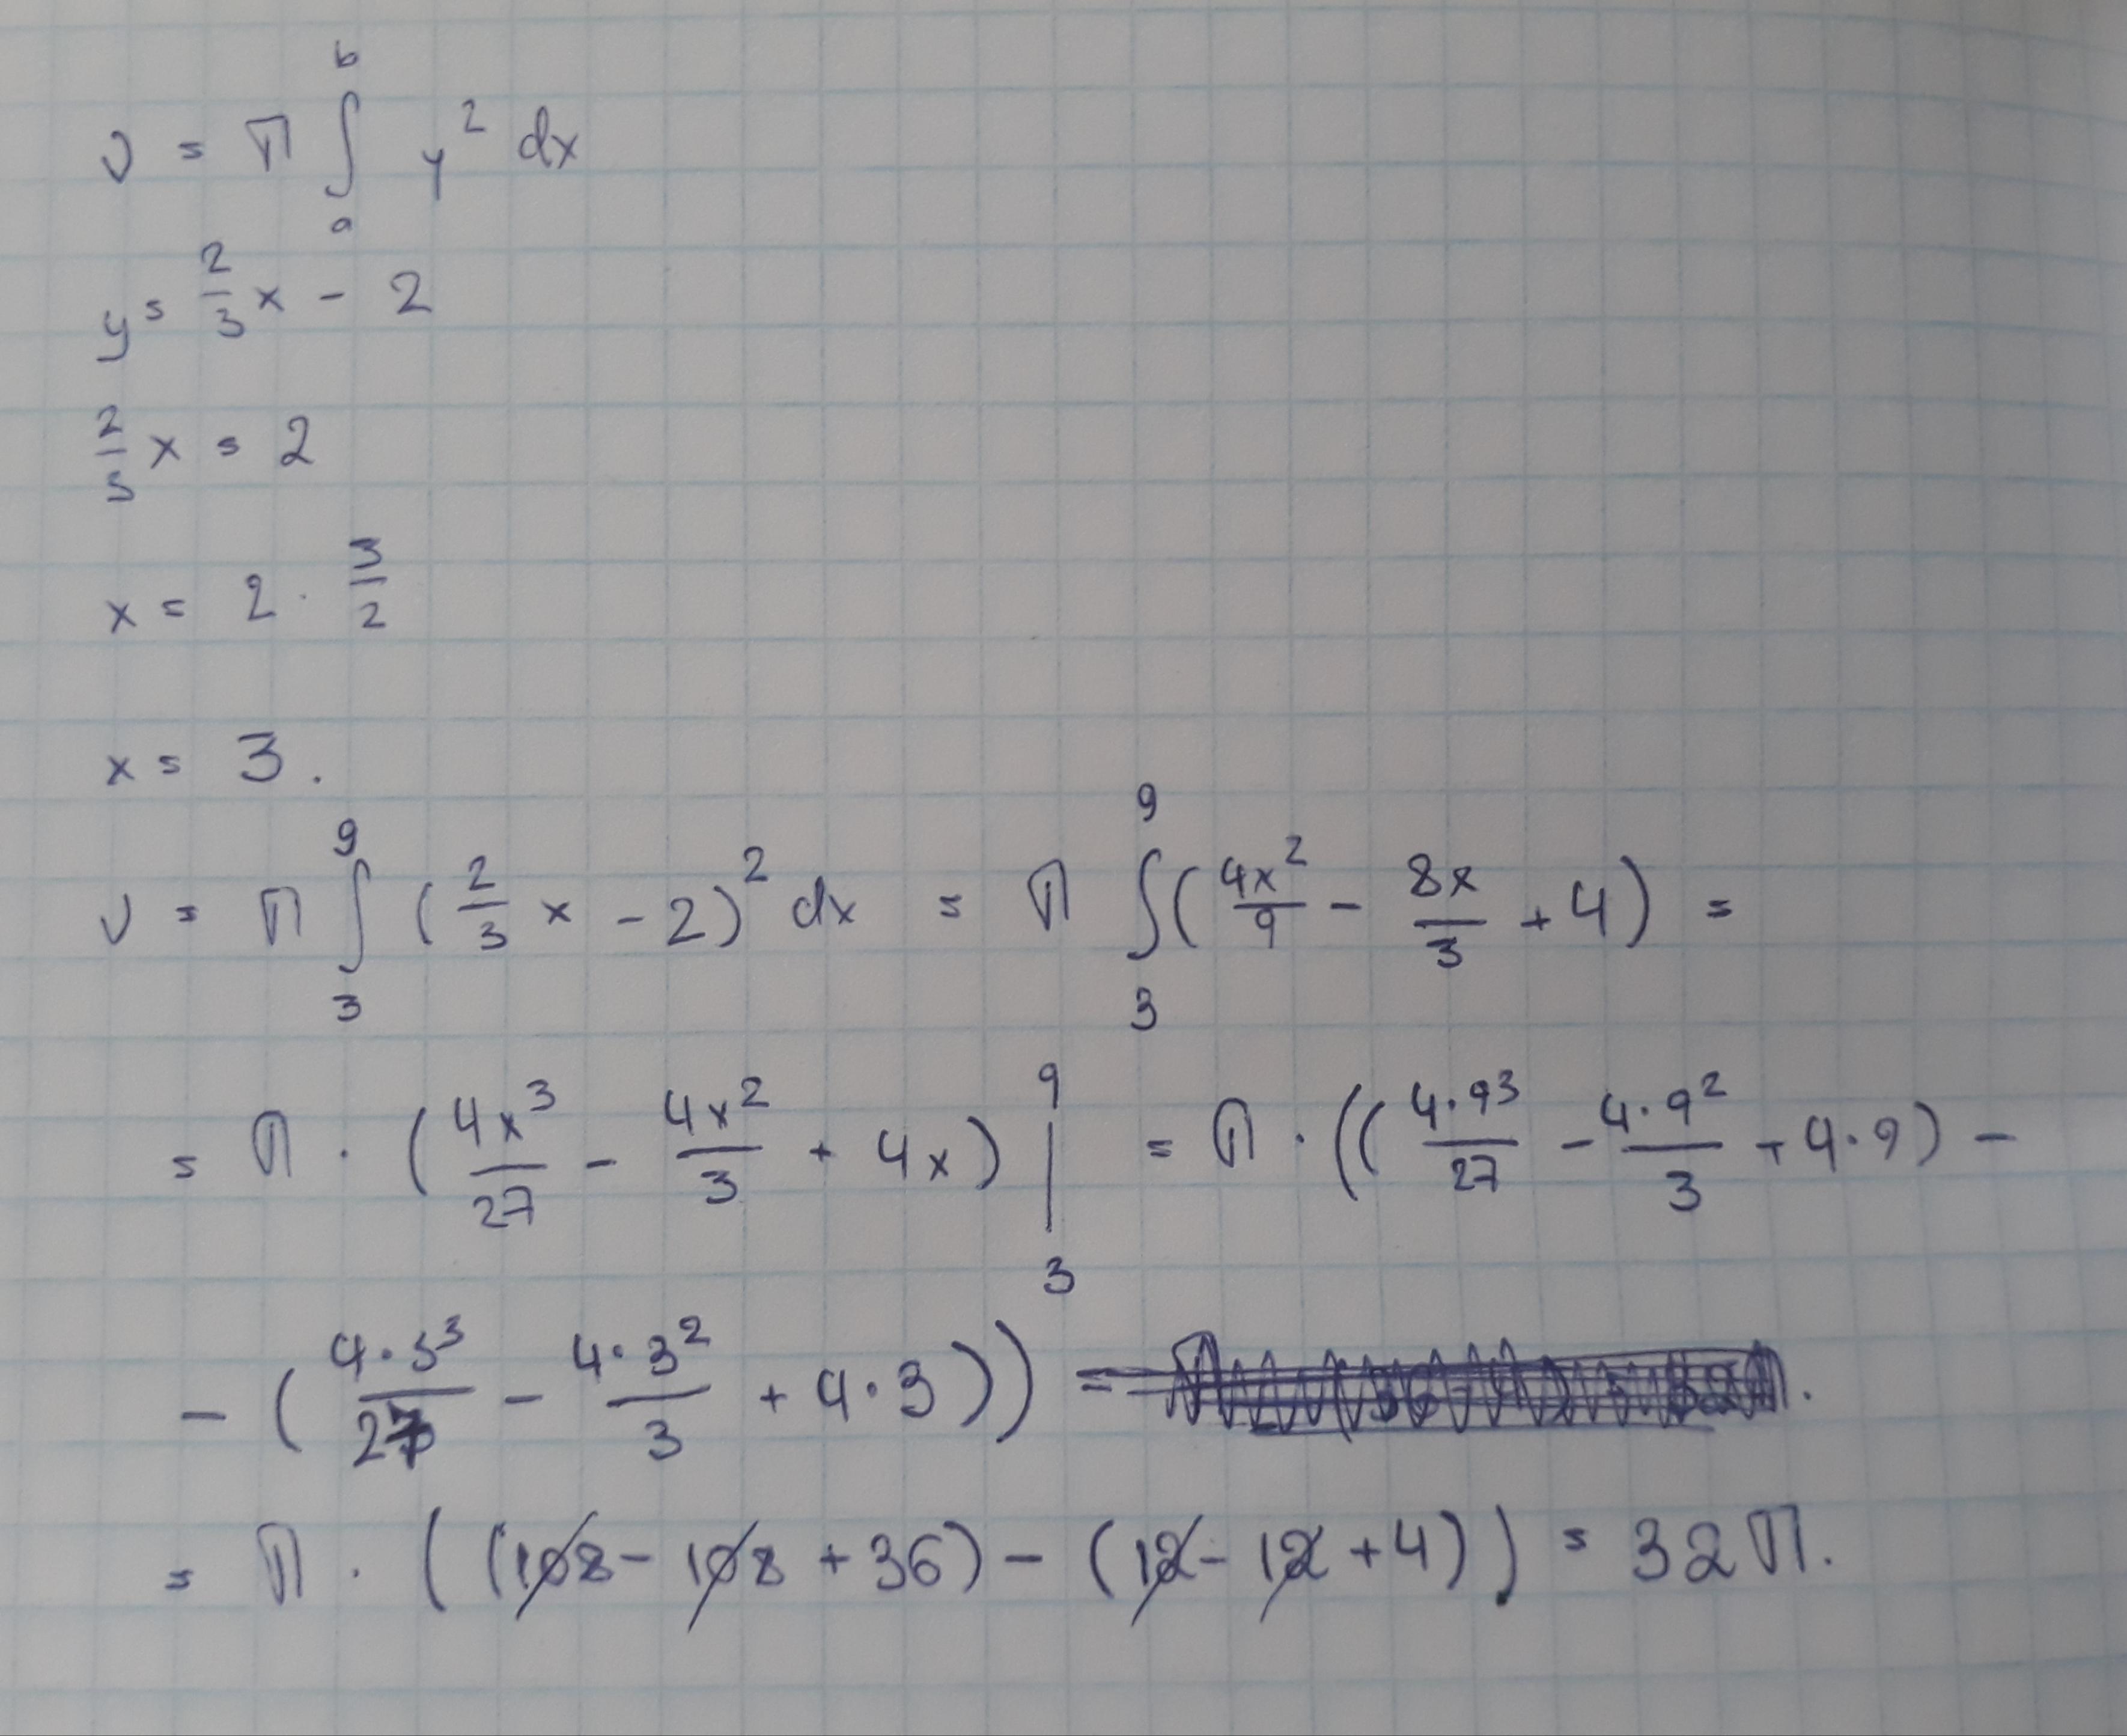 V = π ∫ₐᵇ y² dx
y = 2/3 x - 2
2/3 x = 2
x = 2 · 3/2
x = 3.
V = π ∫₃⁹ (2/3 x - 2)² dx = π ∫₃⁹ (4x²/9 - 8x/3 + 4) =
= π · (4x³/27 - 4x²/3 + 4x) |₃⁹ = π · ((4·9³/27 - 4·9²/3 + 4·9) -
- (4·3³/27 - 4·3²/3 + 4·3)) =
= π · ((108 - 108 + 36) - (12 - 12 + 4)) = 32π.